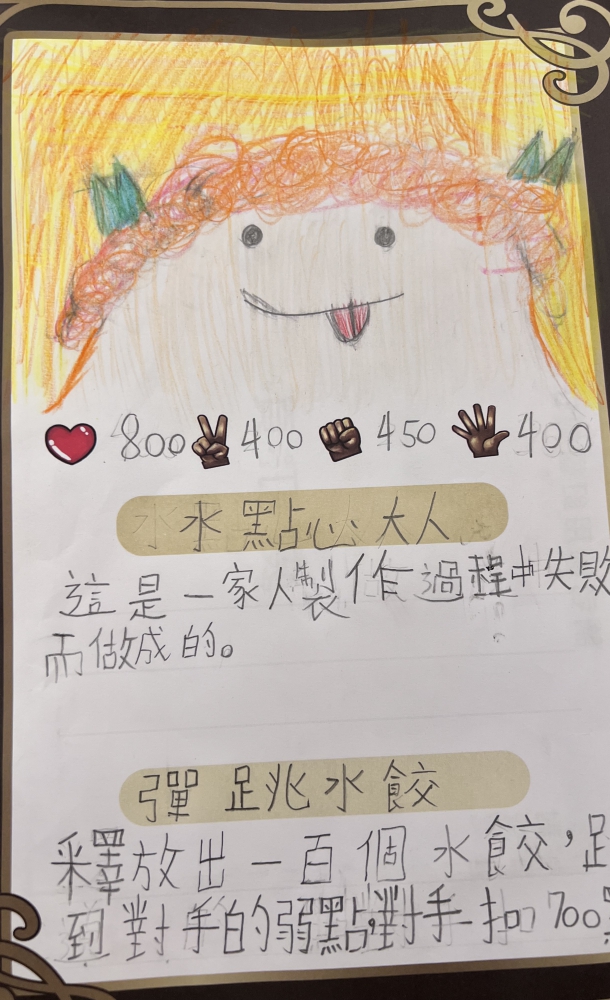 800 400 450 400
水點心大人
這是一家人製作過程中失敗
而做成的。
彈跳水餃
釋放出一百個水餃,
到對手的弱點,對手扣700